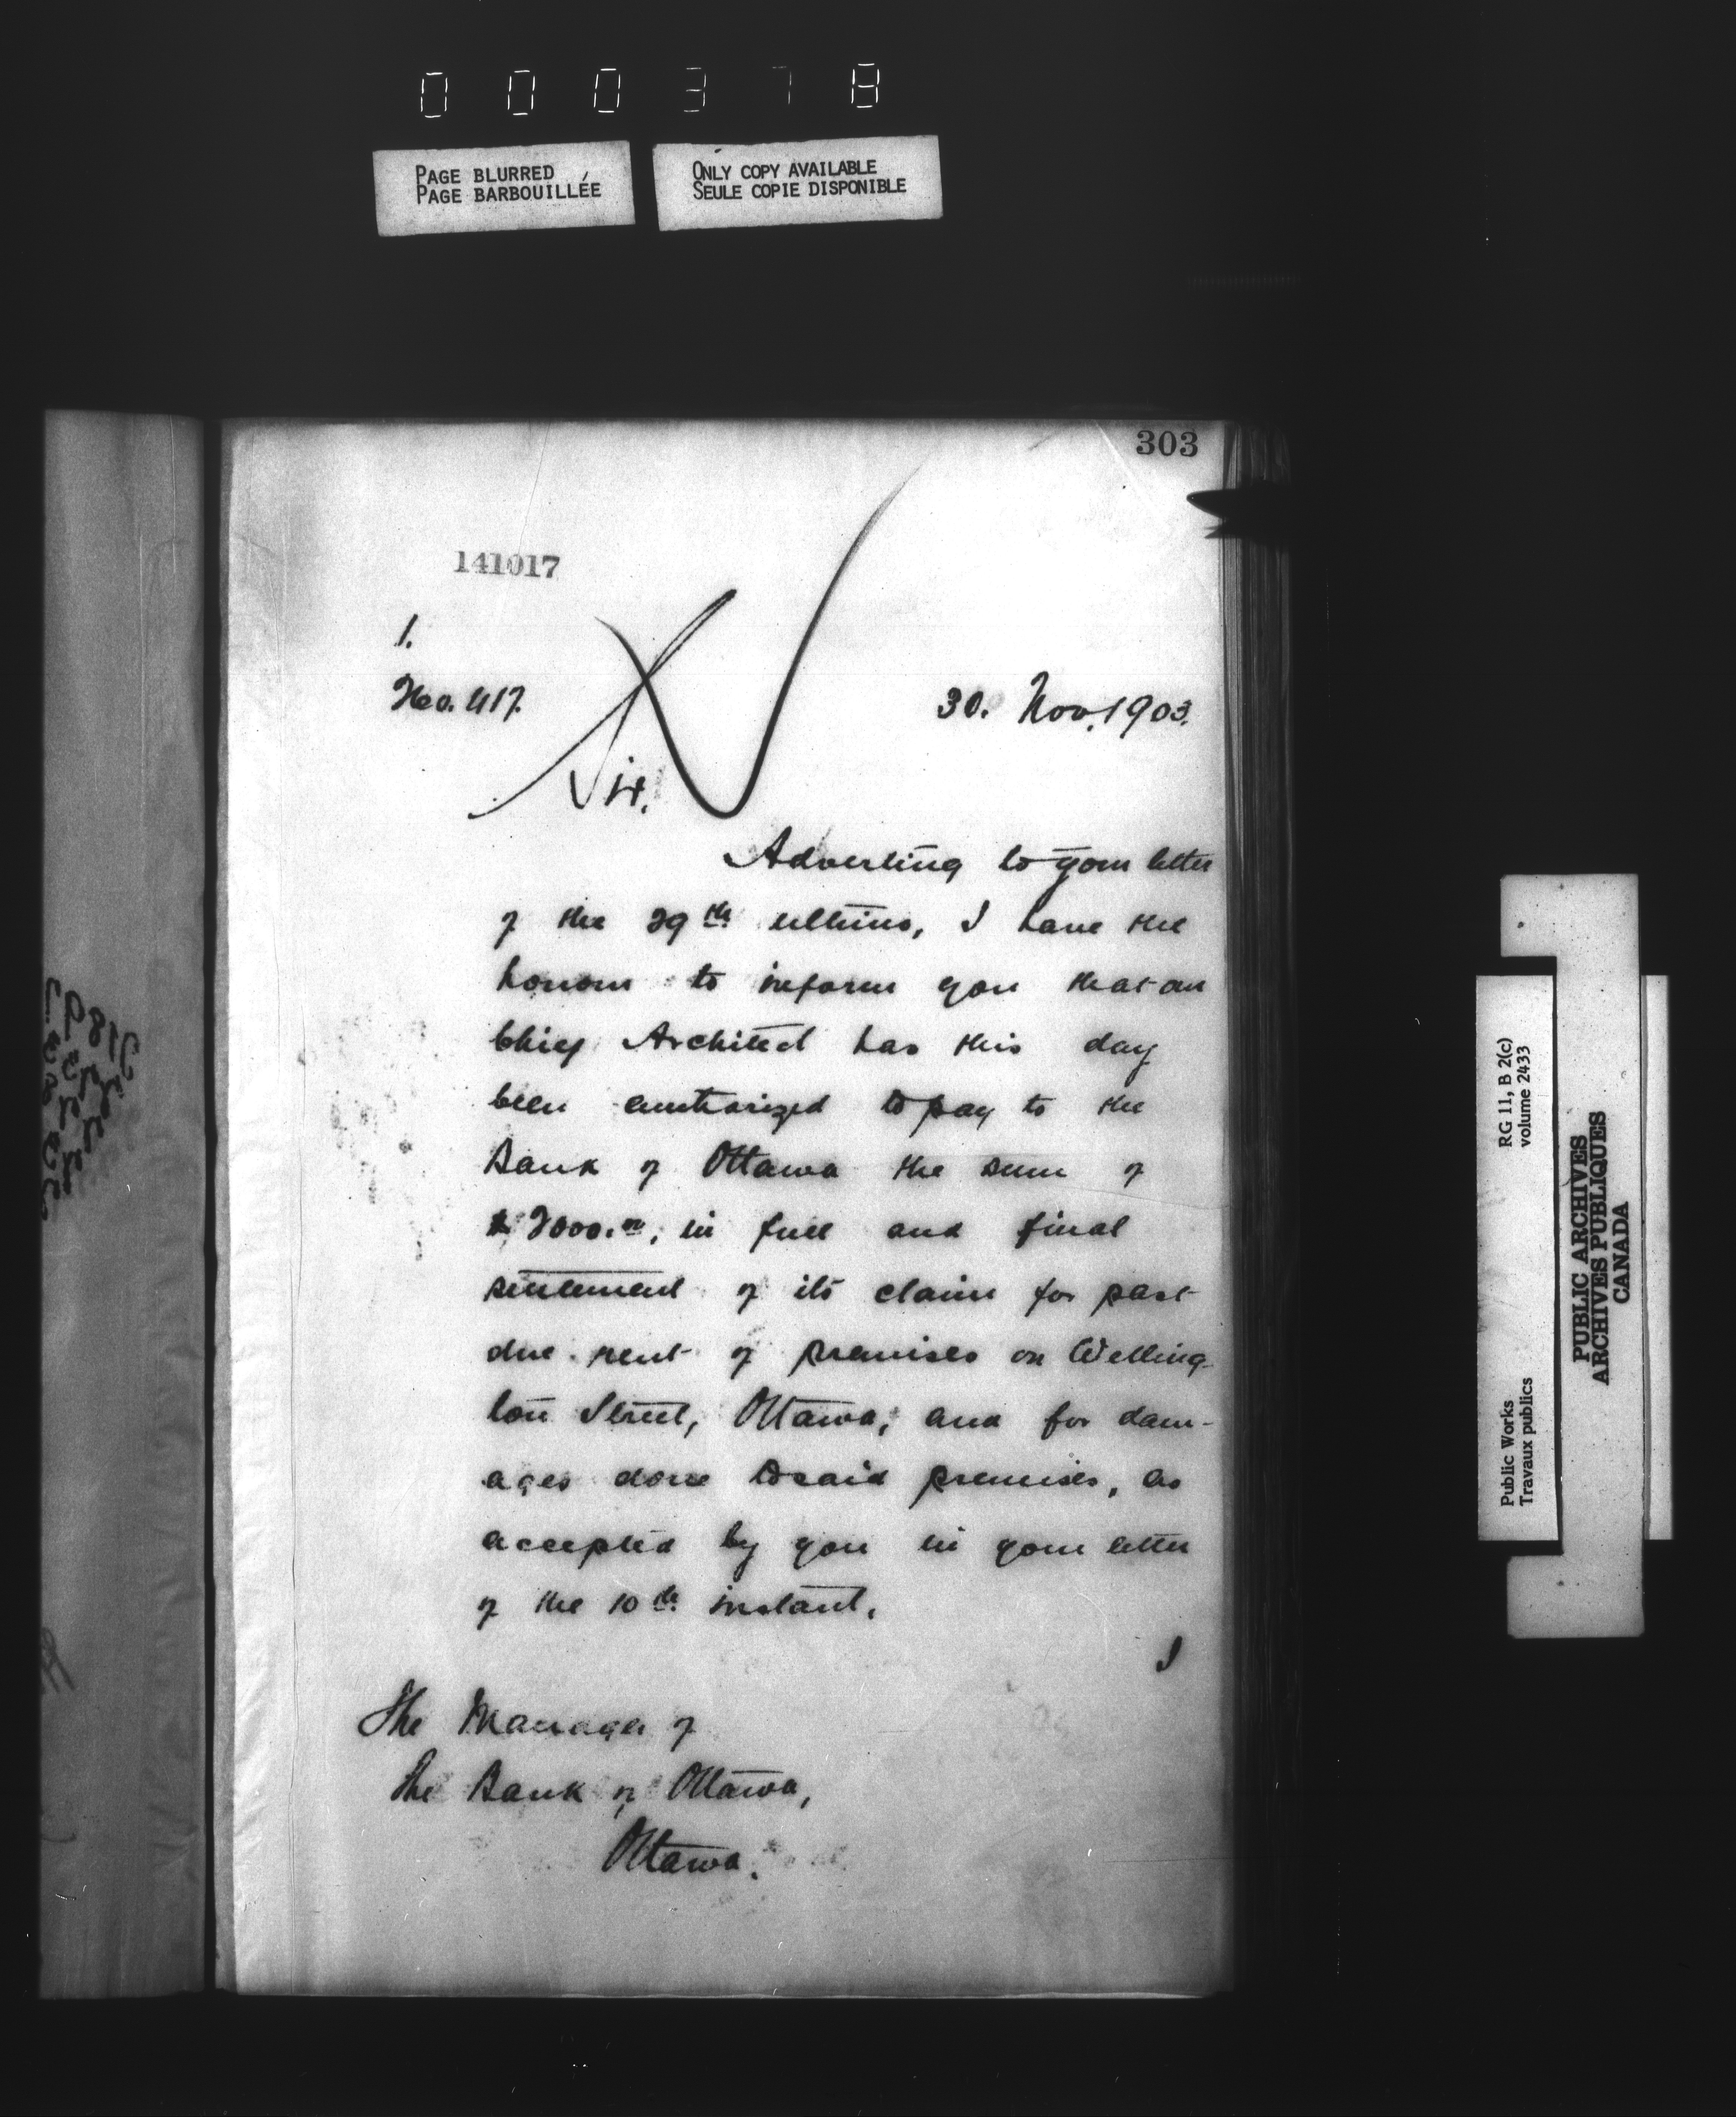 000378
PAGE BLURRED
PAGE BARBOUILLÉE
ONLY COPY AVAILABLE
SEULE COPIE DISPONIBLE
303
141017
1.
No. 417.
30. Nov. 1903.
Sir,
Adverting to your letter
of the 29th ultimo, I have the
honour to inform you that our
Chief Architect has this day
been authorized to pay to the
Bank of Ottawa the sum of
$2000.00, in full and final
settlement of its claim for past
due rent of premises on Welling-
ton Street, Ottawa, and for dam-
ages done to said premises, as
accepted by you in your letter
of the 10th instant.
I
The Manager of
The Bank of Ottawa,
Ottawa.
RG 11, B 2(c)
volume 2433
Public Works
Travaux publics
PUBLIC ARCHIVES
ARCHIVES PUBLIQUES
CANADA